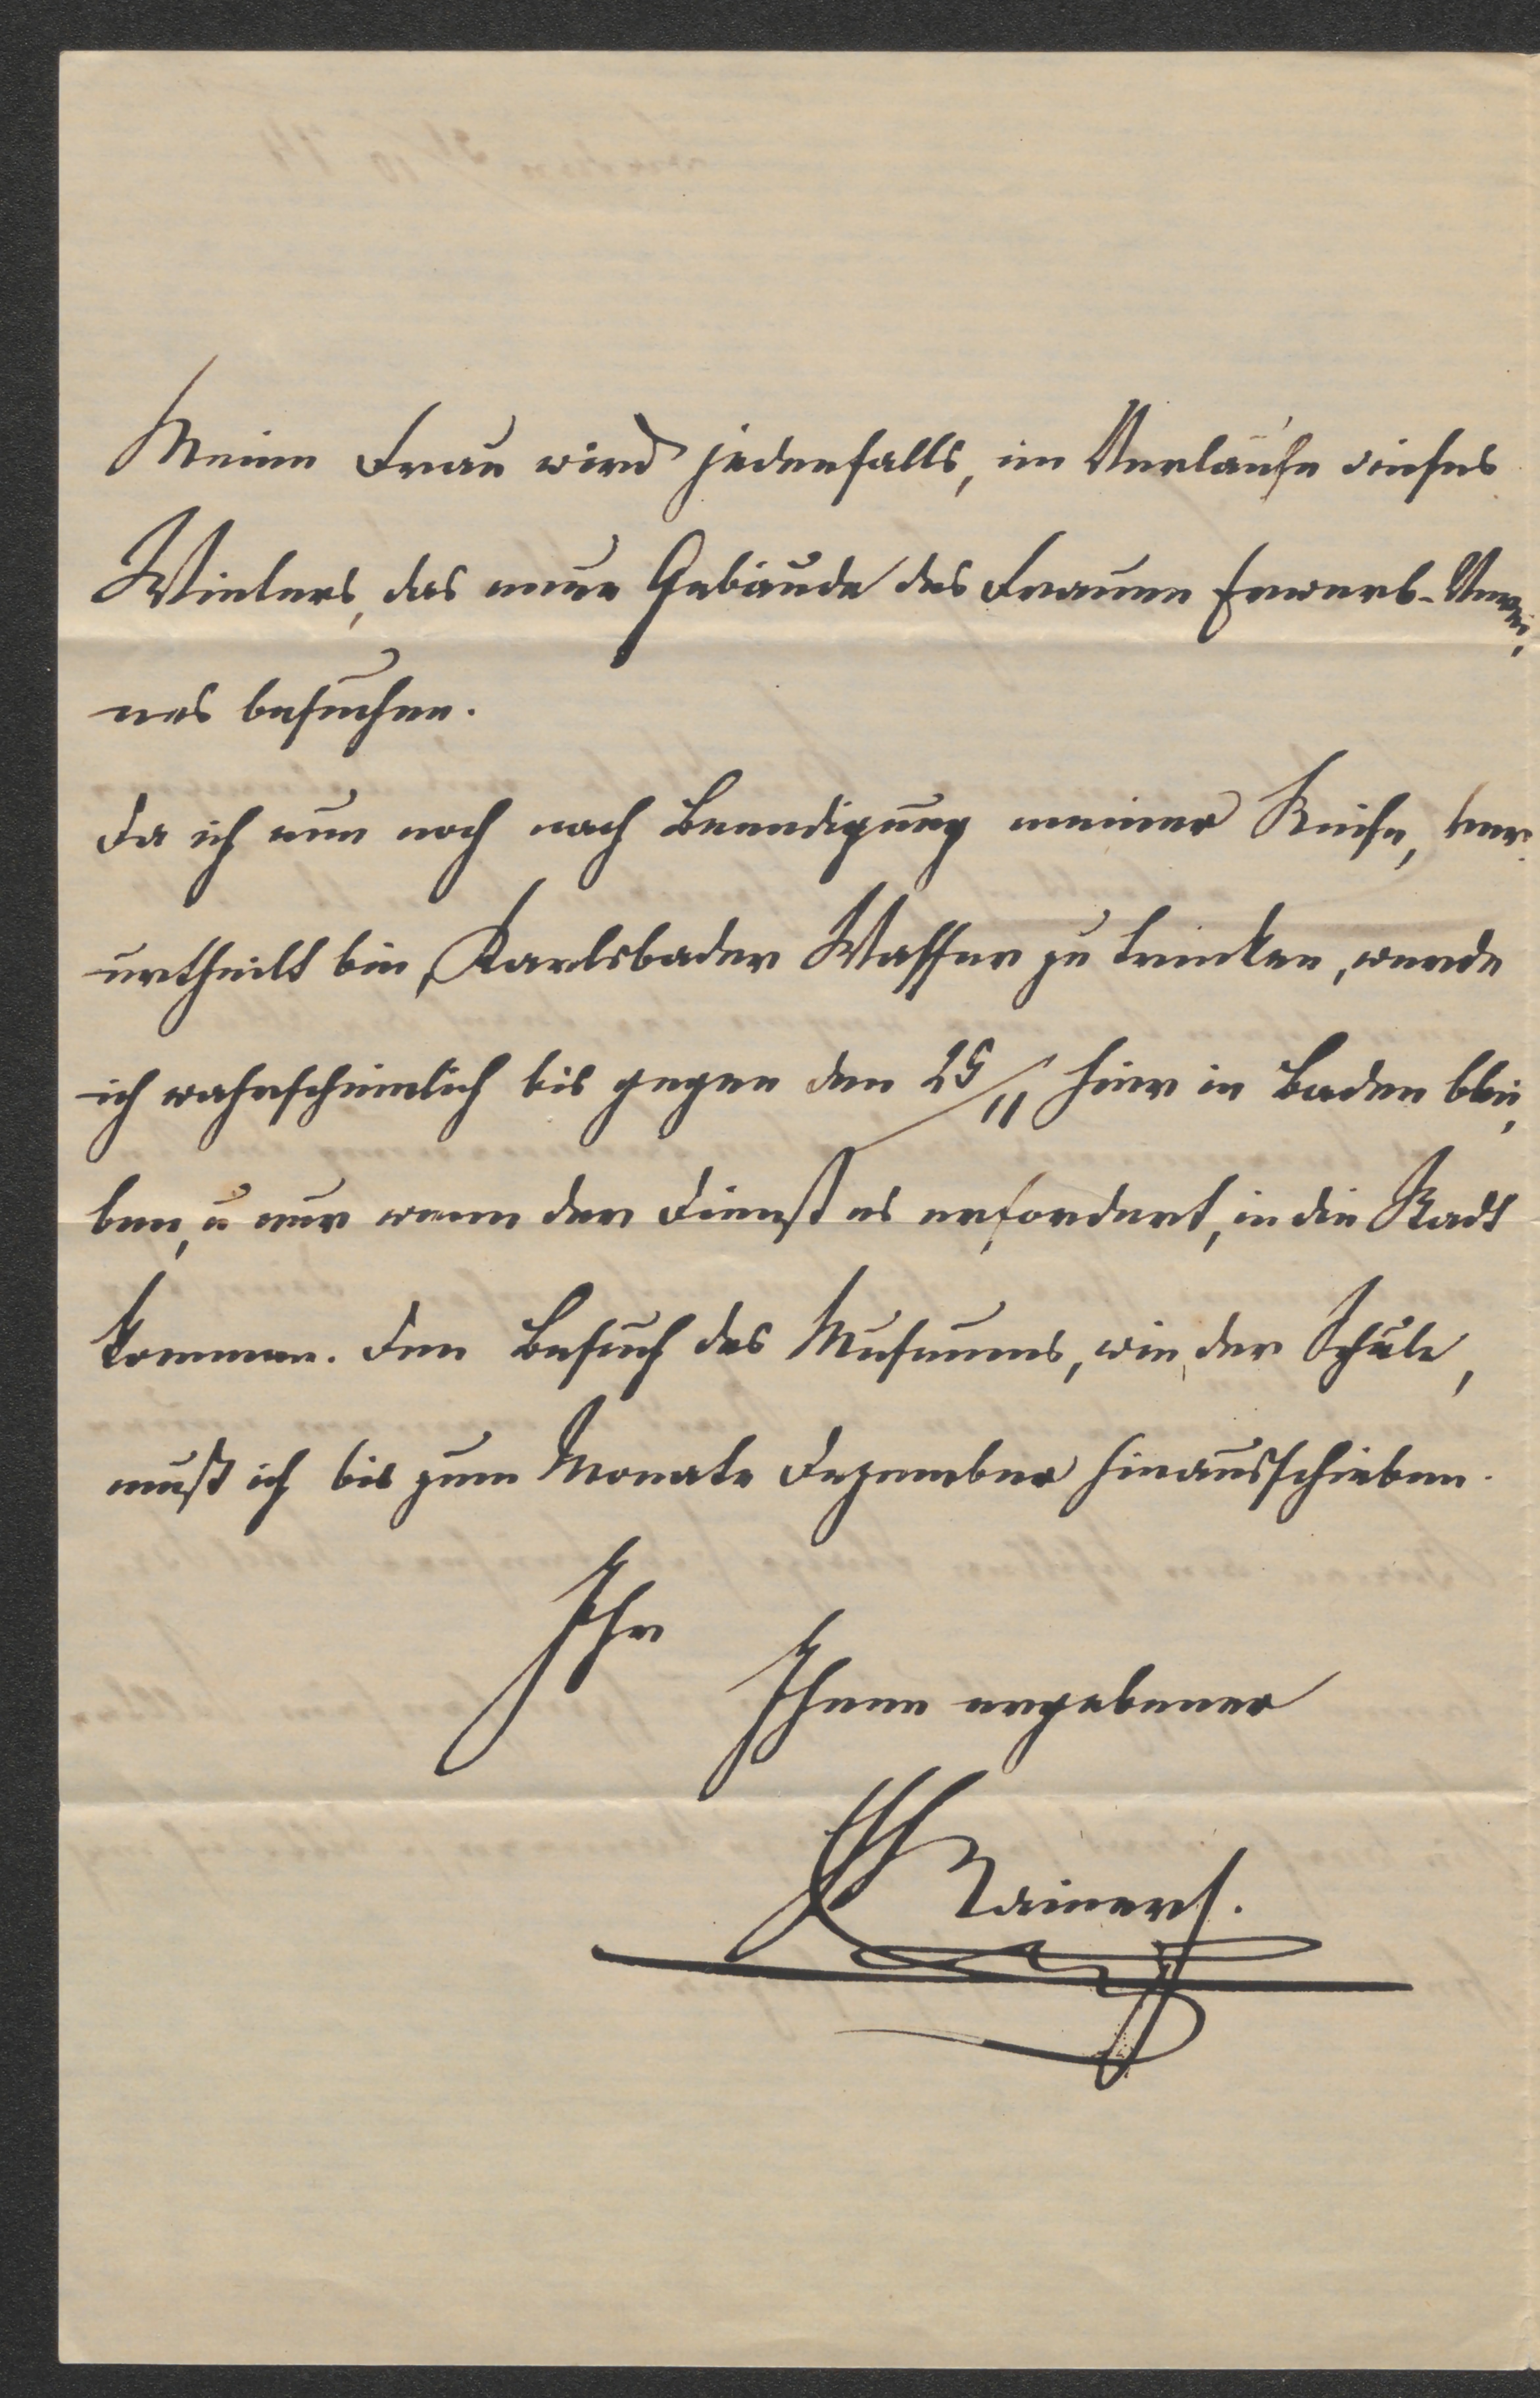 Meine Frau wird jedenfalls, im Verlaufe dieses
Winters, das neue Gebäude des Frauen Erwerb-Verei,
nes besuchen.
Da ich nun noch nach Beendigung meiner Reise, ver,
urtheilt bin, Karlsbader Wasser zu trinken, werde
ich wahrscheinlich bis gegen den 25/11 hier in Baden blei,
ben, u nur wenn der Dienst es erfordert, in die Stadt
kommen. Den Besuch des Museums, wie der Schule,
muß ich bis zum Monate Dezember hinausschieben.
Ihr
Ihnen ergebener
Rainer